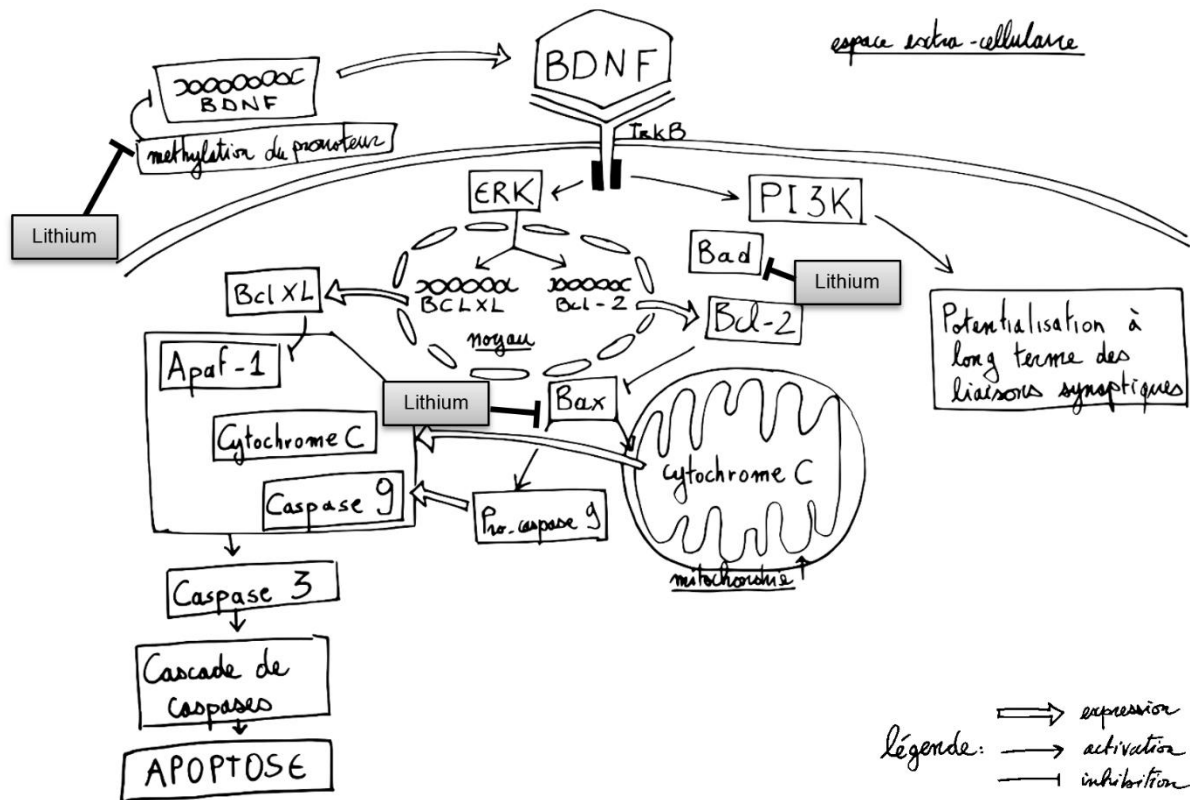 espace extra-cellulaire
BDNF
BDNF
TrkB
méthylation du promoteur
Lithium
ERK
PI3K
Bad
Lithium
BclXL
BCLXL
Bcl-2
Bcl-2
noyau
Potentialisation à
long terme des
liaisons synaptiques
Apaf-1
Lithium
Bax
Cytochrome C
cytochrome C
Caspase 9
Pro-caspase 9
mitochondrie
Caspase 3
Cascade de
caspases
APOPTOSE
légende:
expression
activation
inhibition